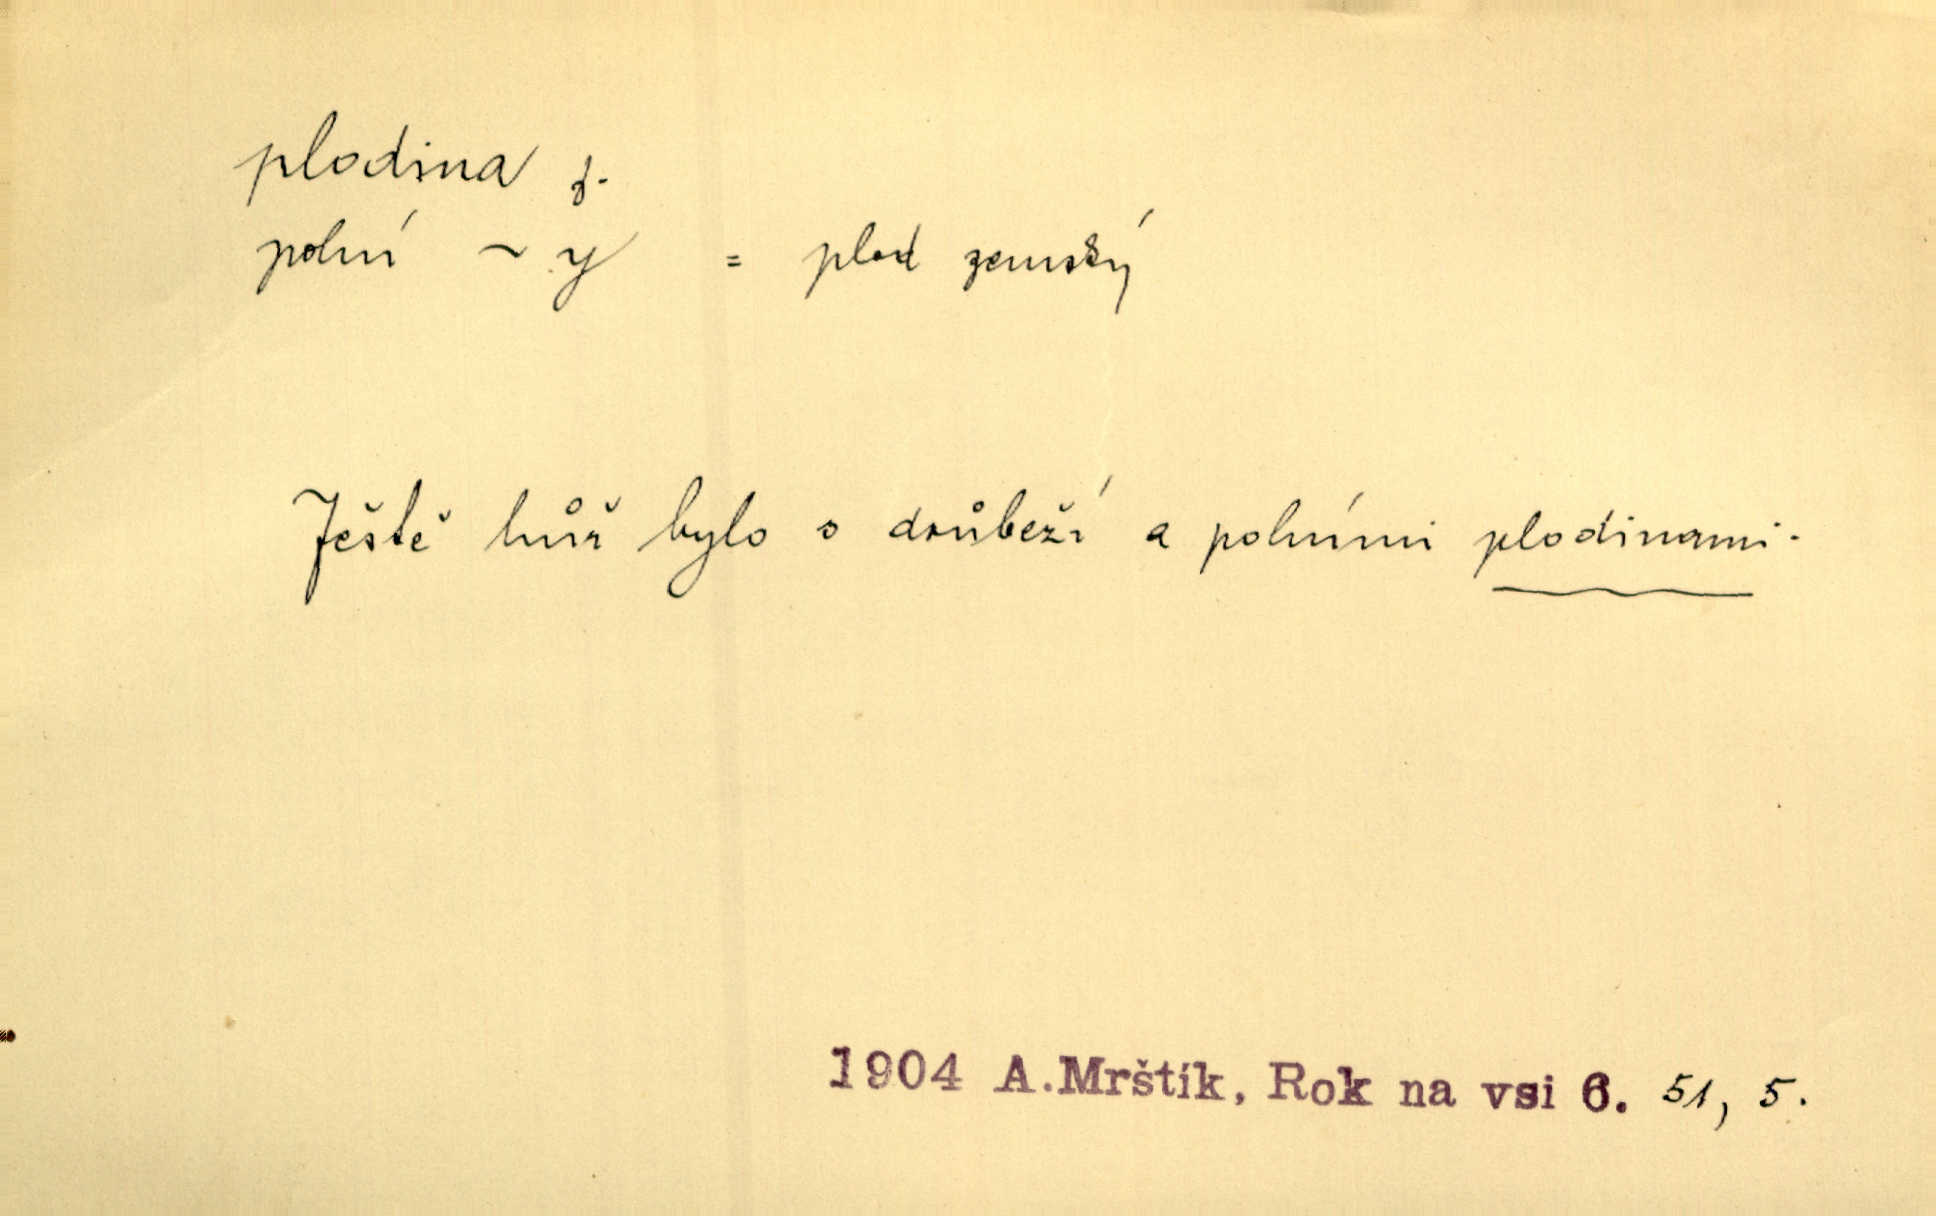 plodina f.
polní ~ y = plod zemský
Ještě hůř bylo s drůbeží a polními plodinami.
1904 A.Mrštík, Rok na vsi 6. 51, 5.